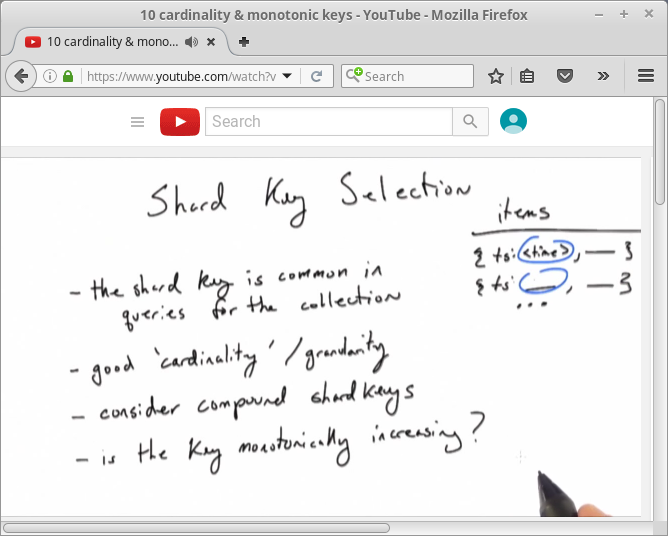 10 cardinality & monotonic keys - YouTube - Mozilla Firefox
10 cardinality & mono...
https://www.youtube.com/watch?v
Search
Search
Shard Key Selection
items
{ ts: <time>, — }
{ ts: __, — }
...
- the shard key is common in
queries for the collection
- good 'cardinality' / granularity
- consider compound shard keys
- is the key monotonically increasing?